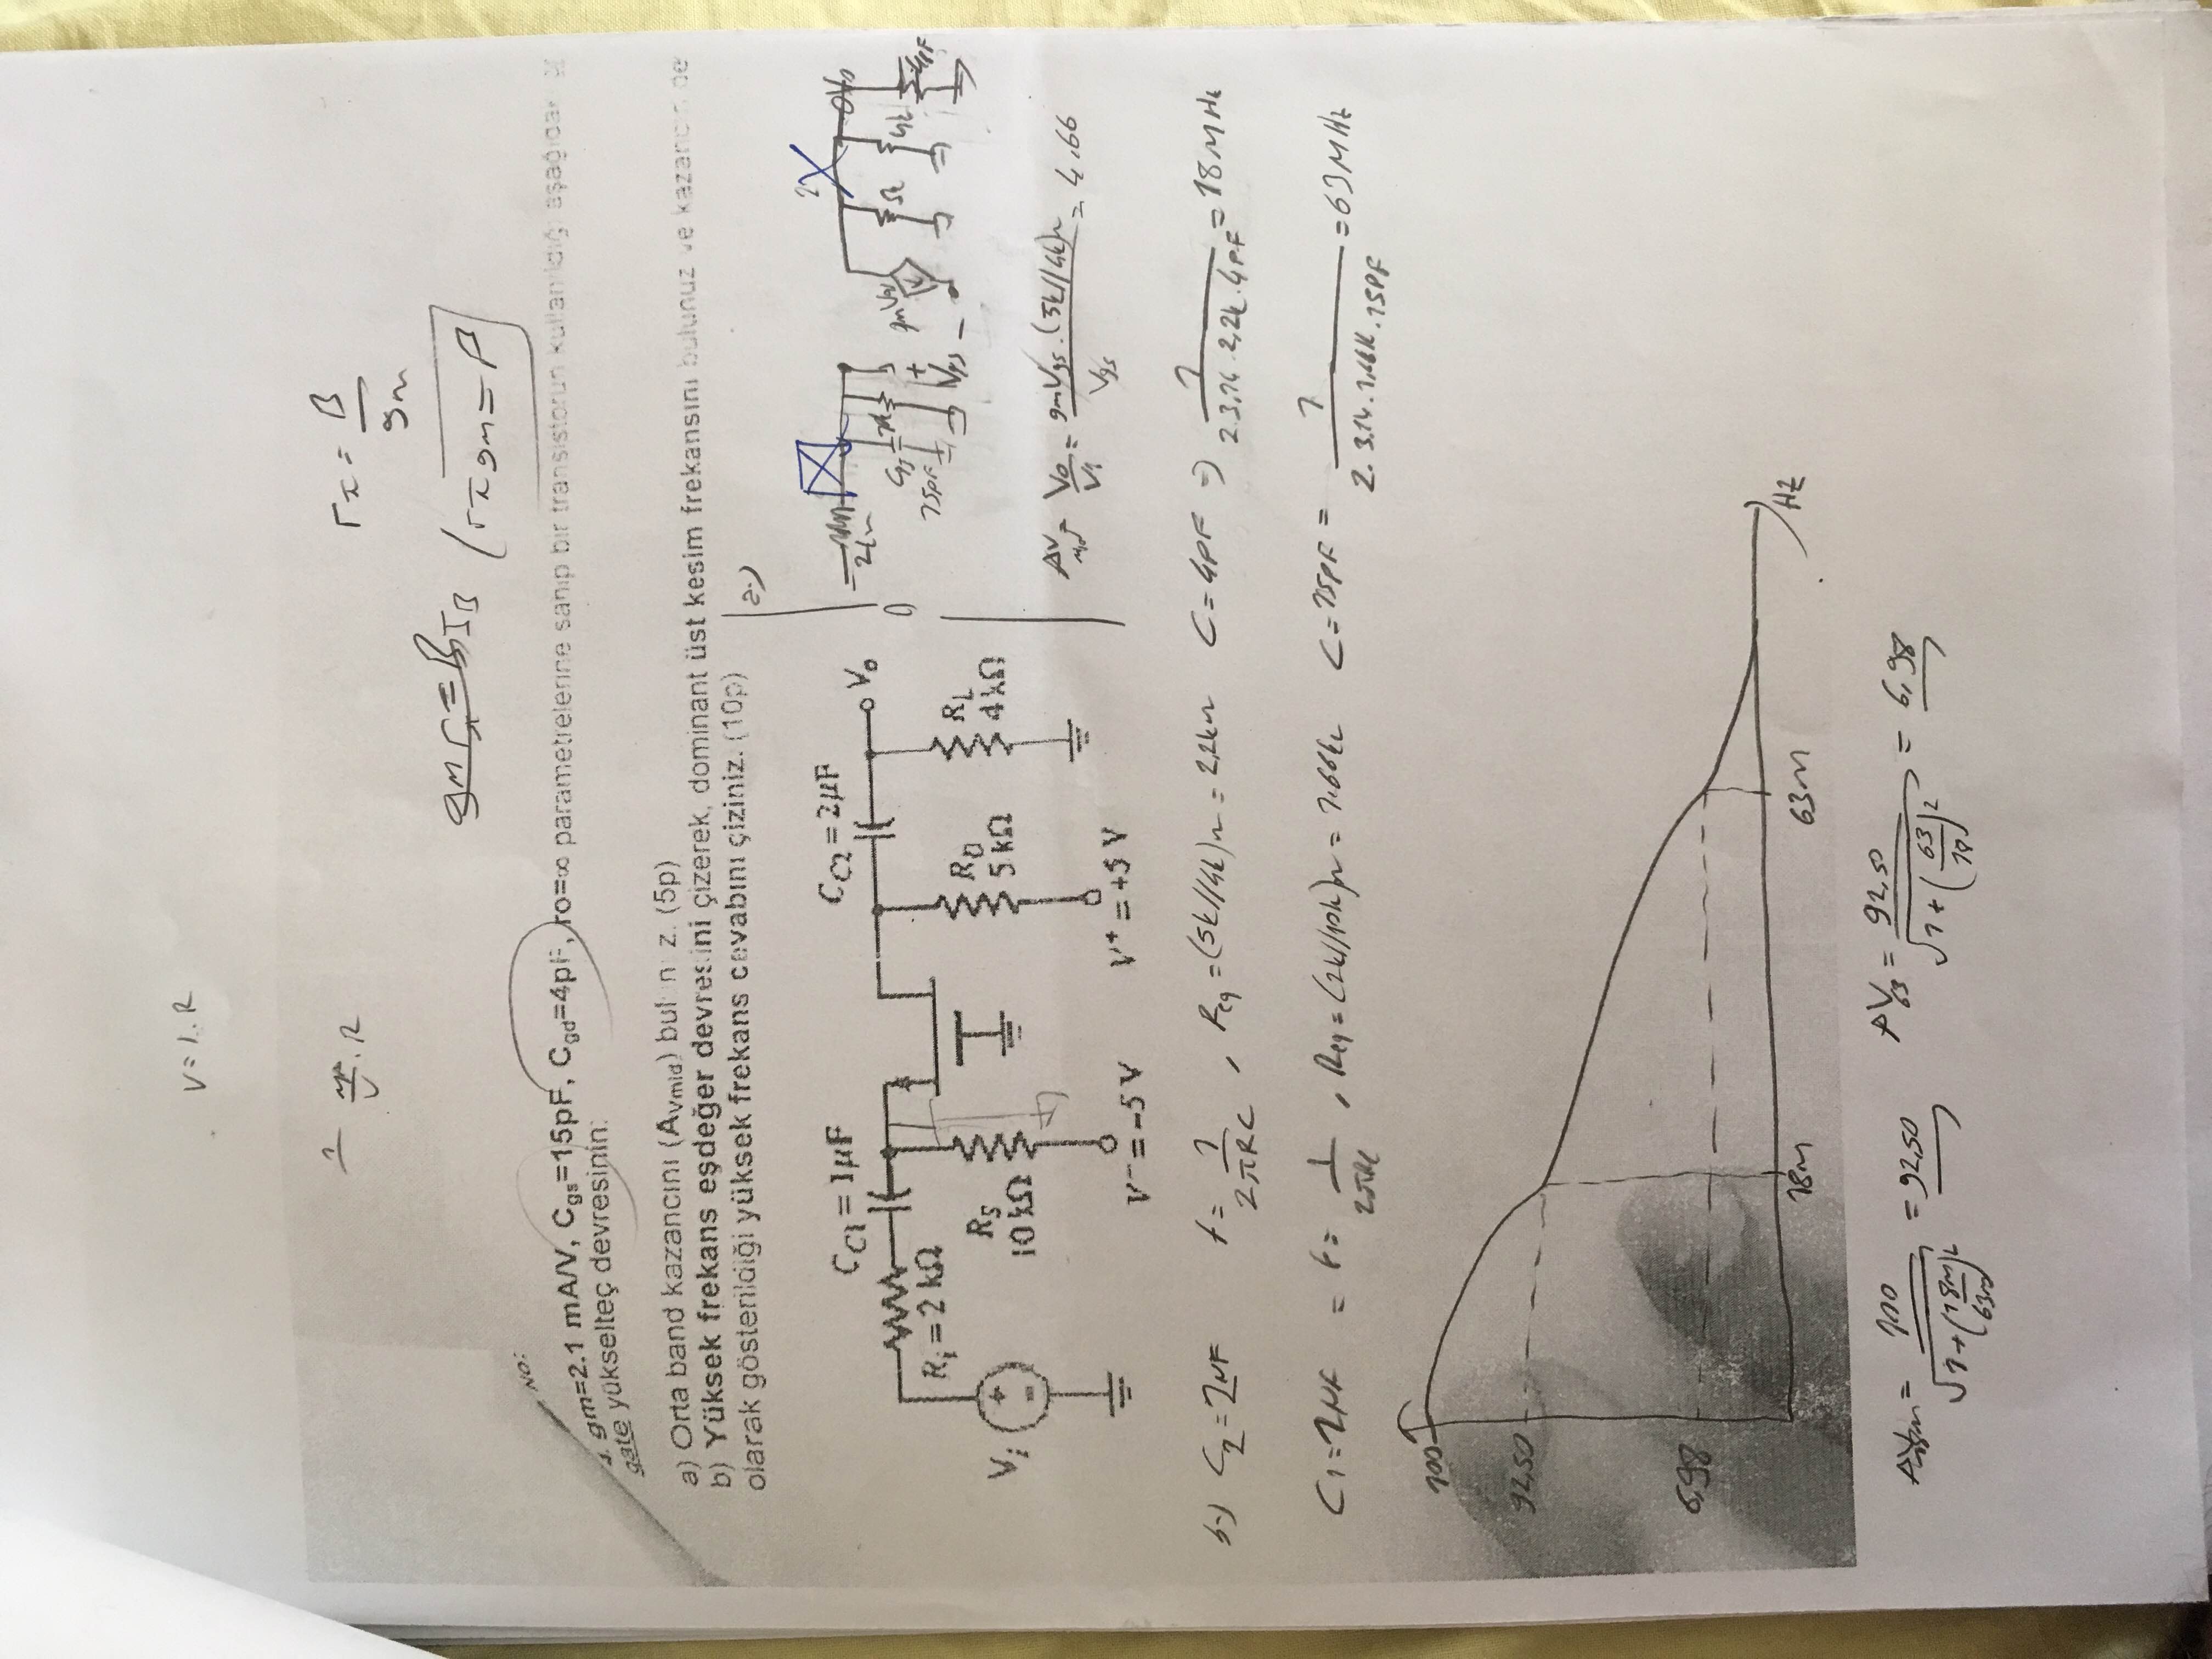 V = I.R
rπ = β / gm
gm rπ = βIB
(rπ gm = β
NO:
gm=2.1 mA/V, Cgs=15pF, Cgd=4pF, ro=∞ parametrelerine sahip bir transistorun kullanıldığı aşağıdaki
gate yükselteç devresinin:
a) Orta band kazancını (AVmid) bulunuz. (5p)
b) Yüksek frekans eşdeğer devresini çizerek, dominant üst kesim frekansını bulunuz ve kazancın de
olarak gösterildiği yüksek frekans cevabını çiziniz. (10p)
a-)
CC1 = 1µF
CC2 = 2µF
Vo
Ri = 2 kΩ
RS
10 kΩ
RD
5 kΩ
RL
4 kΩ
Vi
V- = -5 V
V+ = +5 V
15pF
Vgs
gmVgs
5k
4k
Vo
4pF
AVmid = Vo/Vi = gmVgs.(5k//4k)n / Vgs = 4.66
b-) C2 = 2µF f = 1/2πRC , Req = (5k//4k)n = 2,2kn C = 4pF => 1 / 2.3,14.2,2k.4pF = 18MHz
C1 = 1µF = f = 1/2πRC , Req = (2k//10k)n = 1.66k C = 15pF = 1 / 2.3.14.1,66k.15pF = 63MHz
100
92,50
6,98
18M
63M
Hz
AV18m = 100 / √1+(18m/63m)² = 92,50
AV63 = 92,50 / √1+(63/18)² = 6,98